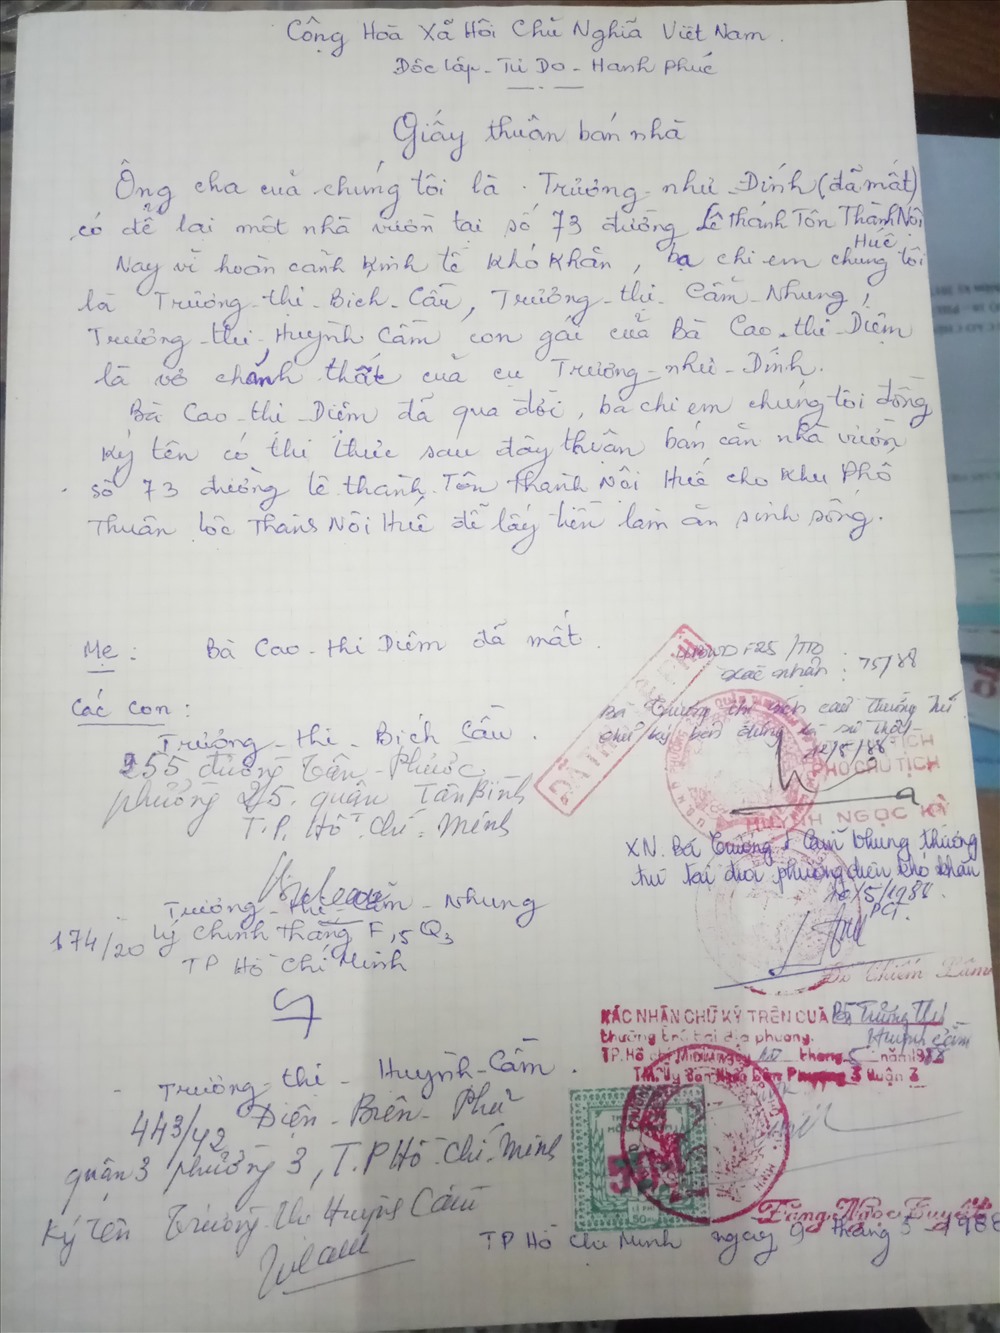 Cộng Hoà Xã Hôi Chủ Nghĩa Việt Nam.
Dôc lâp - Tủ Do - Hanh Phúc
Giấy thuân bán nhà
Ông cha của chúng tôi là Trương như Dính (đã mất)
có để lại môt nhà vườn tại số 73 đường Lê thánh Tôn Thành Nôi
Huế
Nay vì hoàn cảnh kinh tế khó khăn, ba chi em chúng tôi
là Trương-thi-Bich-Cầu, Trương-thi-Cẩm-Nhung,
Trương-thi, Huỳnh Cầm con gái của Bà Cao-thi-Diêm
là vơ chánh thất của cu Trương-như-Dính.
Bà Cao-thi-Diêm đã qua đời, ba chi em chúng tôi đồng
ký tên có thi thưc sau đây thuân bán căn nhà vườn
số 73 đường lê thánh Tôn Thành Nôi Huế cho Khu Phố
Thuân lôc Thành Nôi Huế để lấy tiền làm ăn sinh sống.
Me: Bà Cao-thi Diêm đã mất.
Các con:
Trương-thi-Bich Cầu.
255 đường Tân-Phước
phường 25. quận Tân Bình
T.P. Hồ. Chí. Minh
Trương-thi-Cẩm-Nhung
174/20 Lý chinh thắng F,5 Q3
TP Hồ Chí Minh
- Trương-thi-Huỳnh-Cầm.
443/42 Diên-Biên-Phủ
quận 3 phường 3, T.P Hồ-Chí-Minh
Ký tên Trương-Thi Huỳnh Cầm
F25/TB
Xác nhận: 75/88
12/5/88
CHỦ TỊCH
PHÓ CHỦ TỊCH
HUỲNH NGỌC KỲ
XN. Bà Trương t Cẩm Nhung thường
trú tại đia phương diên khó khăn
10/5/1988
PCT.
XÁC NHẬN CHỮ KÝ TRÊN CỦA Bà Trương Thị
Huỳnh Cầm
thường trú tại địa phương.
TP.Hồ chí Minh ngày tháng 5 năm 1988
TM. Ủy ban Nhân Dân Phường 3 Quận 3
TP Hồ Chí Minh ngày 9 tháng 5 - 1988